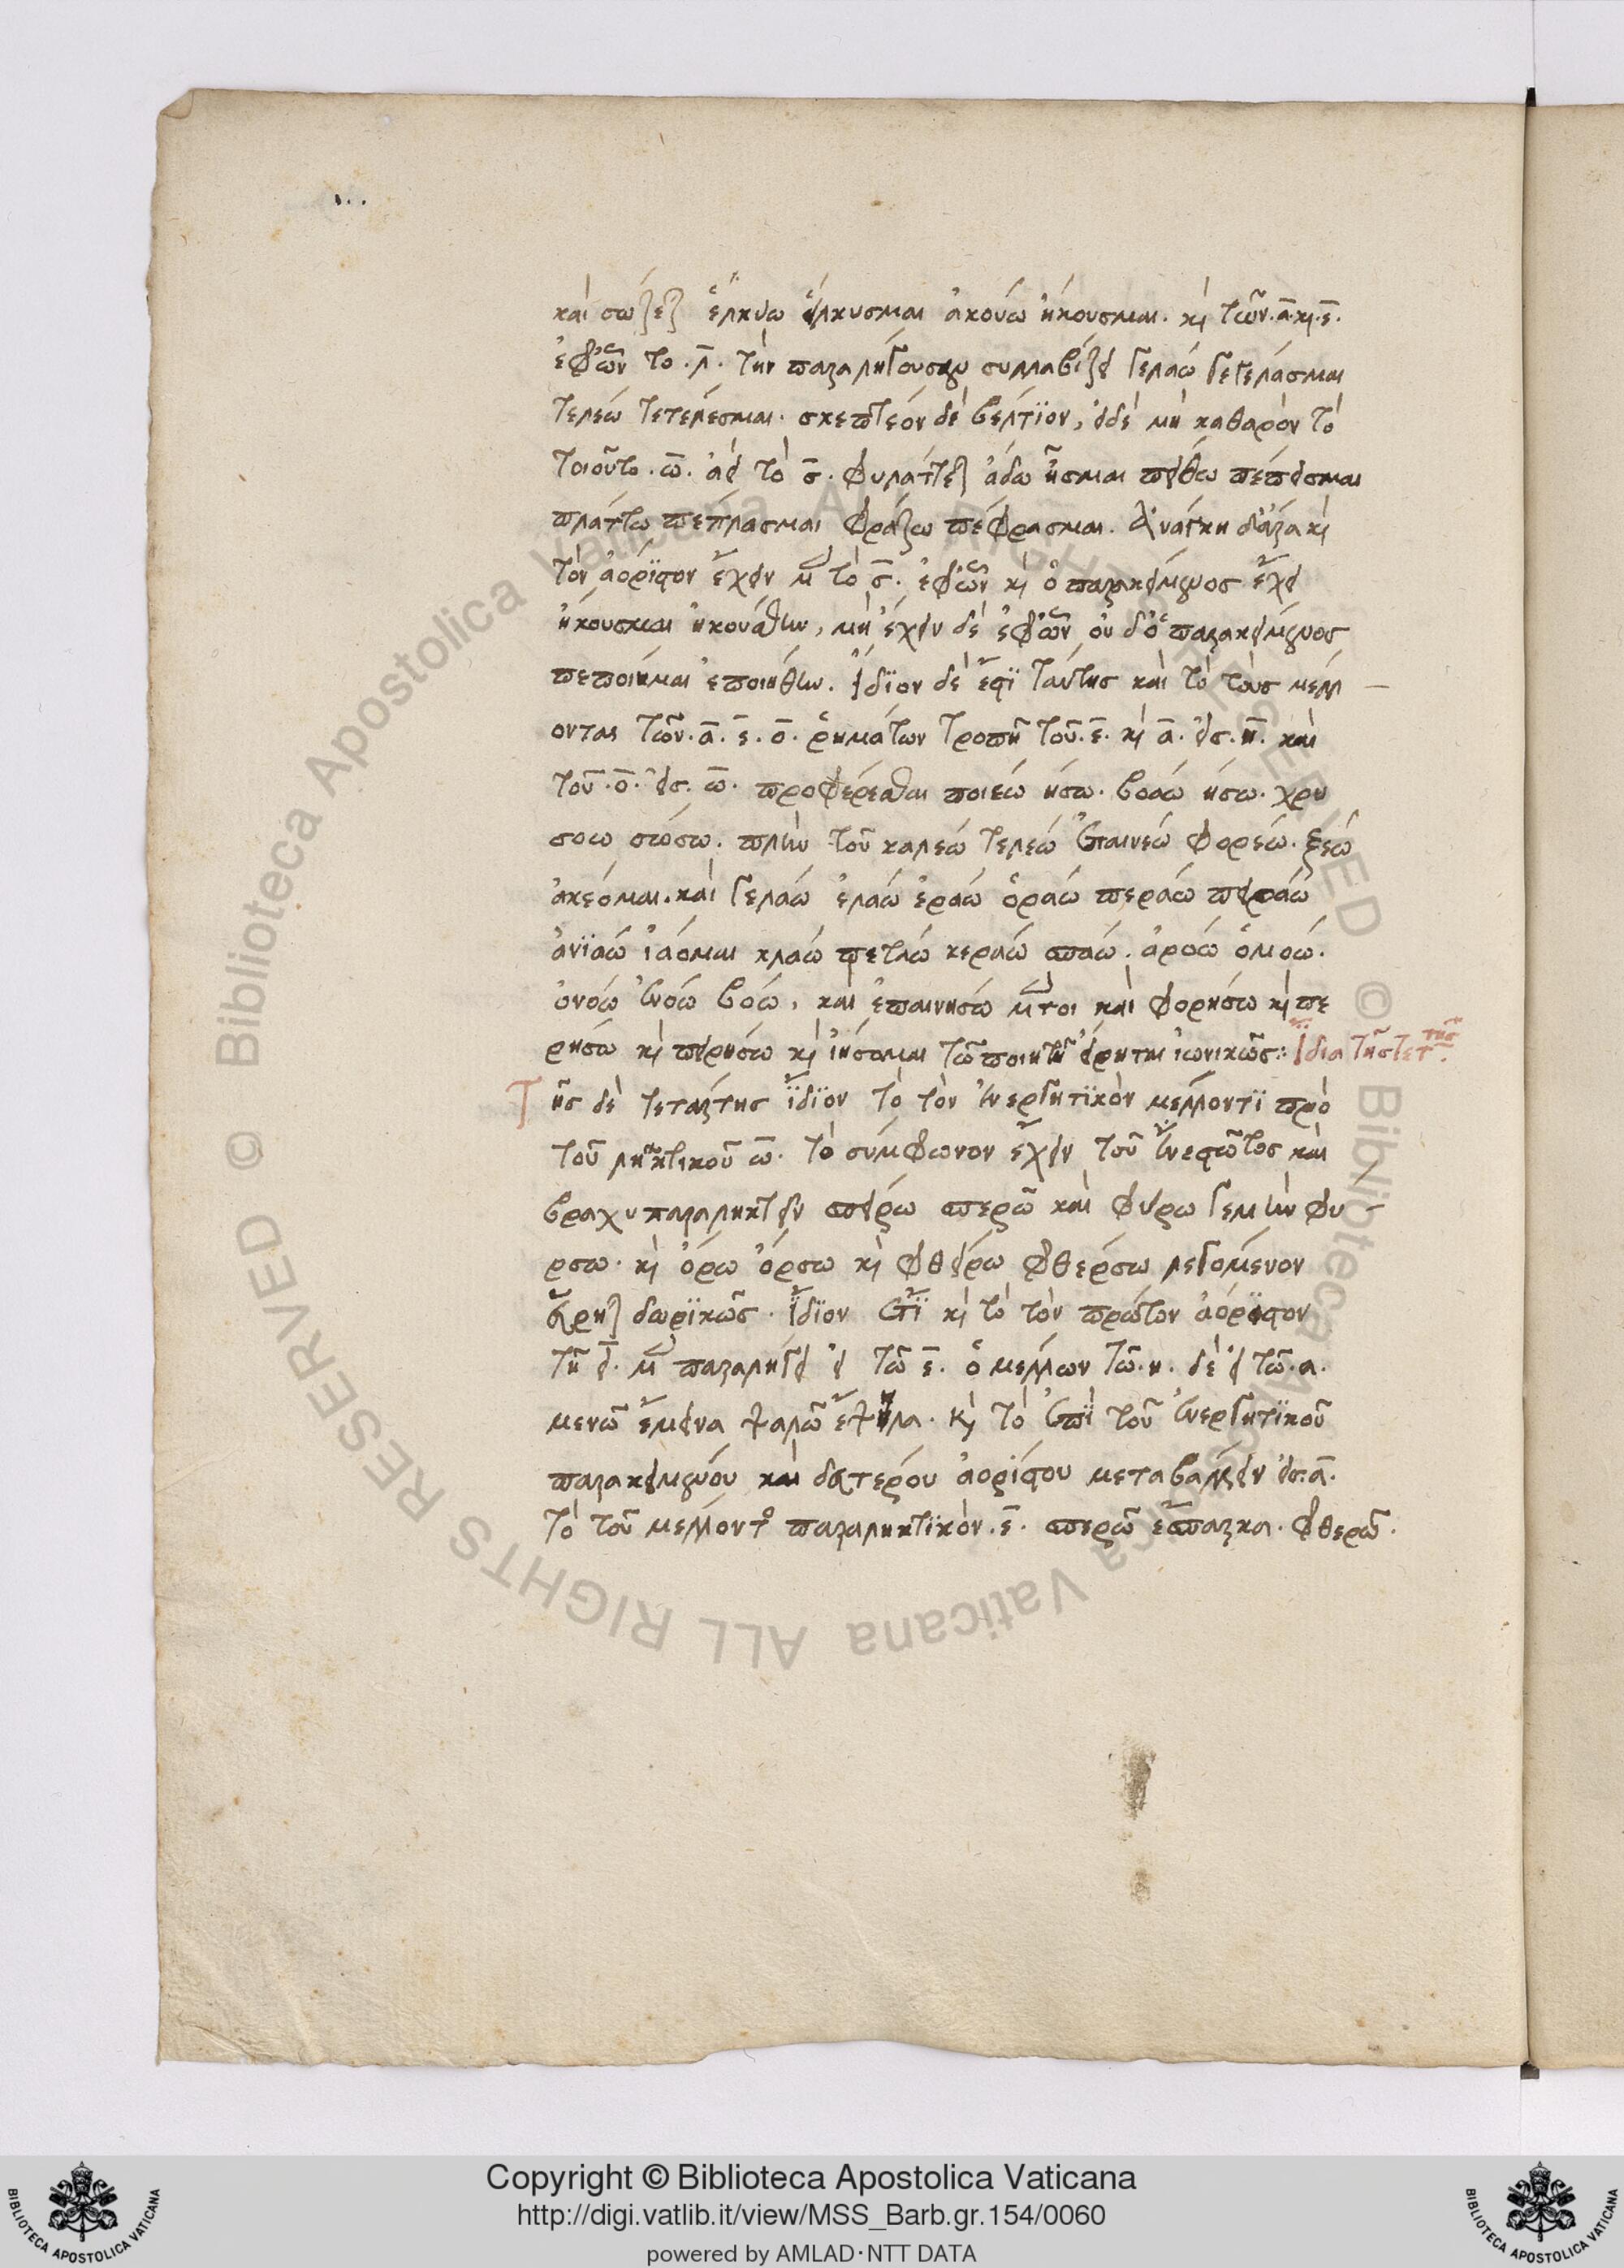 καὶ σώζει ἑλκύω εἵλκυσμαι ἀκούω ἤκουσμαι. καὶ τῶν. α. καὶ. ε.
ἐφ' ὧν τὸ. λ. τὴν παραλήγουσαν συλλαβίζει γελάω γεγέλασμαι
τελέω τετέλεσμαι. σκεπτέον δὲ βέλτϊον, εἰ δὲ μὴ καθαρὸν τὸ
τοιοῦτο. ω. ἀεὶ τὸ σ. φυλάττει ἄδω ἦσμαι πείθω πέπεισμαι
πλάττω πέπλασμαι φράζω πέφρασμαι. Ἀνάγκη δ' ἄρα καὶ
τὸν ἀόρϊστον ἔχειν μετὰ τὸ σ. ἐφ' ὧν καὶ ὁ παρακείμενος ἔχει
ἤκουσμαι ἠκούσθην, μὴ ἔχειν δὲ ἐφ' ὧν οὐδ' ὁ παρακείμενος
πεποίημαι ἐποιήθην. Ἴδϊον δὲ ἐστϊ ταύτης καὶ τὸ τοὺς μέλλ
οντας τῶν. α. ε. ο. ῥημάτων τροπῇ τοῦ. ε. καὶ α. εἰς. η. καὶ
τοῦ. ο. εἰς. ω. προφέρεσθαι ποιέω ήσω. βοάω ήσω. χρυ
σόω σώσω. πλὴν τοῦ καλέω τελέω ἐπαινέω φορέω. ξέω
ἀκέομαι. καὶ γελάω ἐλάω ἐράω ὁράω περάω πειράω
ἀνϊάω ἰάομαι κλάω πετάω κεράω σπάω. ἀρόω ὀμόω.
ὀνόω ἐνόω βόω, καὶ ἐπαινήσω μέντοι καὶ φορήσω καὶ πε
ρήσω καὶ πειρήσω καὶ ἰήσομαι τῷ ποιητῇ εἴρηται ἰωνικῶς:: Ἴδια τῆς τετάρτης
Τῆς δὲ τετάρτης ἴδϊον τὸ τὸν ἐνεργητϊκὸν μέλλοντϊ πρὸ
τοῦ ληκτικοῦ ω. τὸ σύμφωνον ἔχειν τοῦ ἐνεστῶτος καὶ
βραχυπαραληκτεῖν σπείρω σπερῶ καὶ φύρω γεμὴν φύ
ρσω. καὶ ὄρω ὄρσω καὶ φθείρω φθέρσω λεγόμενον
εὕρηται δωρϊκῶς. Ἴδϊον ἐστϊ καὶ τὸ τὸν πρῶτον ἀόρϊστον
τῇ ει. μὲν παραλήγει εἰ τῷ ε. ὁ μέλλων τῷ. η. δὲ εἰ τῷ. α.
μενῶ ἔμεινα ψαλῶ ἔψηλα. καὶ τὸ ἐπϊ τοῦ ἐνεργητϊκοῦ
παρακειμένου καὶ δευτέρου ἀορίστου μεταβάλλειν εἰς. α.
τὸ τοῦ μέλλοντος παραληκτϊκὸν. ε. σπερῶ ἔσπαρκα. φθερῶ.
Copyright © Biblioteca Apostolica Vaticana
http://digi.vatlib.it/view/MSS_Barb.gr.154/0060
powered by AMLAD·NTT DATA
BIBLIOTECA APOSTOLICA VATICANA
BIBLIOTECA APOSTOLICA VATICANA
© Biblioteca Apostolica Vaticana ALL RIGHTS RESERVED
© Biblioteca Apostolica Vaticana ALL RIGHTS RESERVED